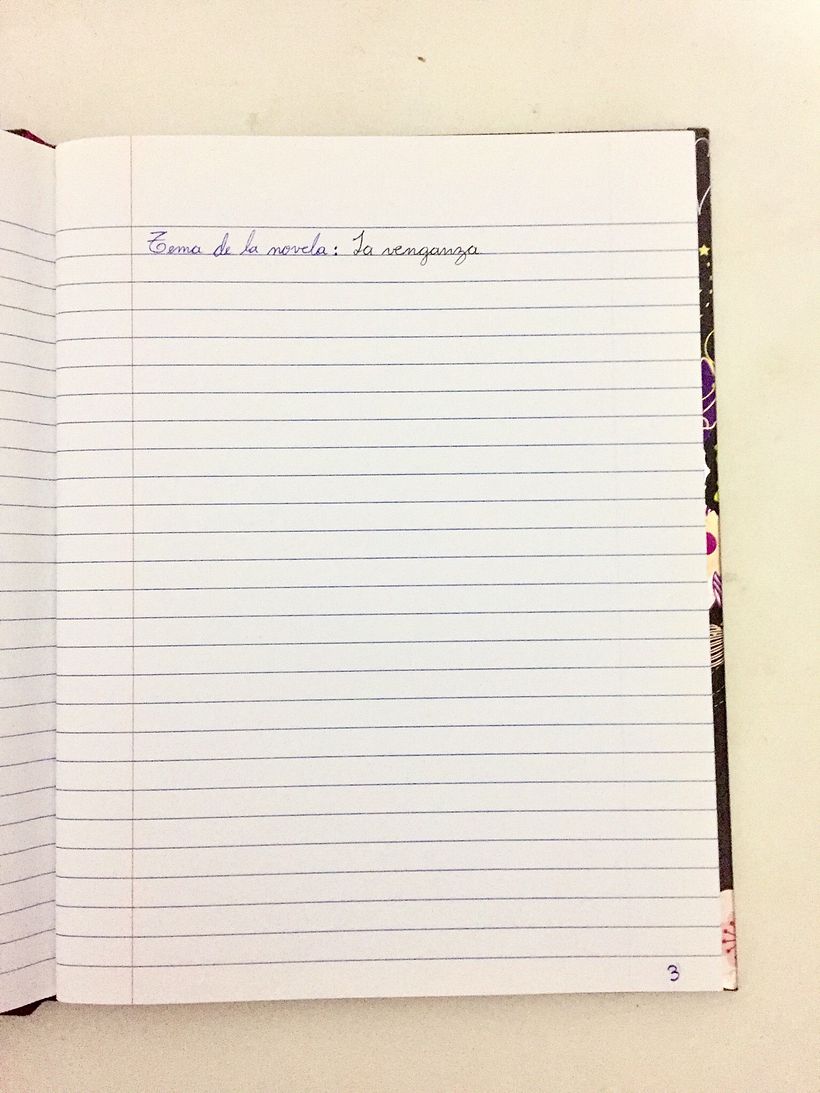 Tema de la novela: La venganza
3